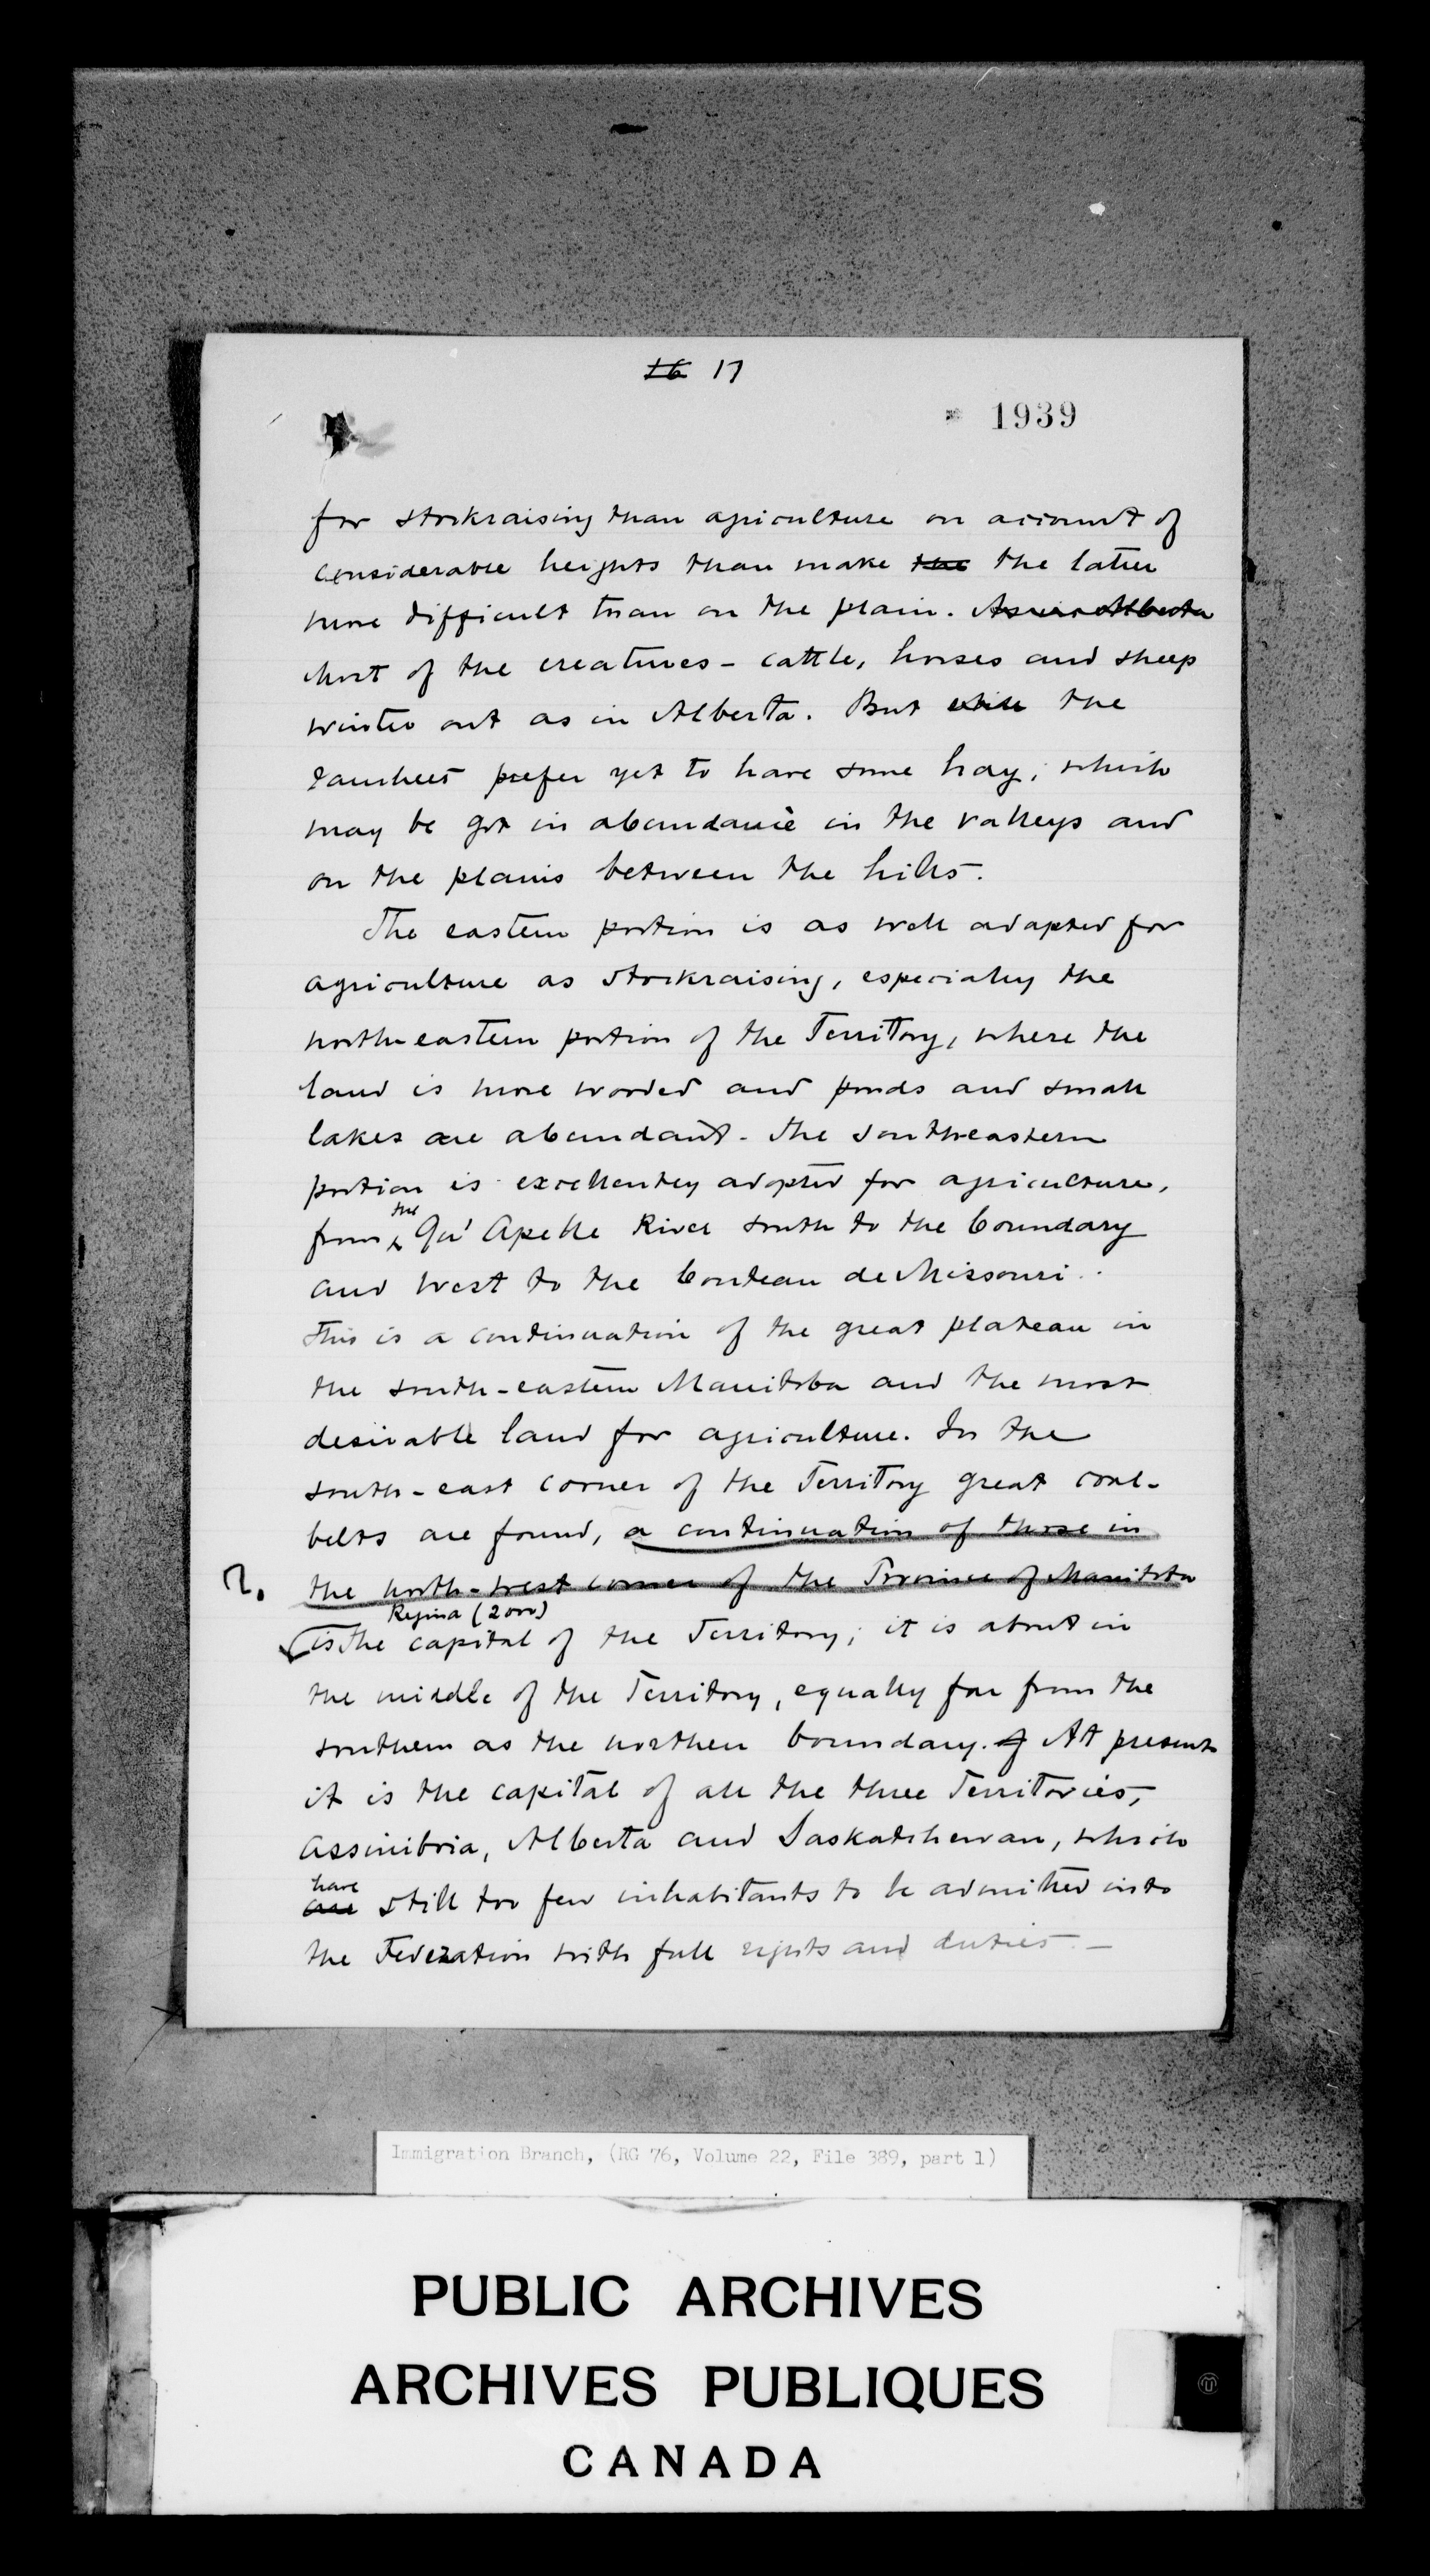 16 17
1939
for stockraising than agriculture on account of
considerable heights than make the the latter
more difficult than on the plain. As in Alberta
Most of the creatures - cattle, horses and sheep
winter out as in Alberta. But the
ranchers prefer yet to have some hay, which
may be got in abundance in the valleys and
on the plains between the hills.
The eastern portion is as well adapted for
agriculture as stockraising, especially the
north-eastern portion of the Territory, where the
land is more wooded and ponds and small
lakes are abundant. The south-eastern
portion is excellently adopted for agriculture,
the
from Qu' Apelle River south to the boundary
and west to the Couteau de Missouri.
This is a continuation of the great plateau in
the south-eastern Manitoba and the most
desirable land for agriculture. In the
south-east corner of the Territory great coal-
belts are found, a continuation of those in
?. the north-west corner of the Province of Manitoba
Regina (2000)
is the capital of the Territory; it is about in
the middle of the Territory, equally far from the
southern as the northern boundary. At present
it is the capital of all the three Territories,
Assiniboia, Alberta and Saskatchewan, which
have
are still too few inhabitants to be admitted into
the Federation with full rights and duties. -
Immigration Branch, (RG 76, Volume 22, File 389, part 1)
PUBLIC ARCHIVES
ARCHIVES PUBLIQUES
CANADA